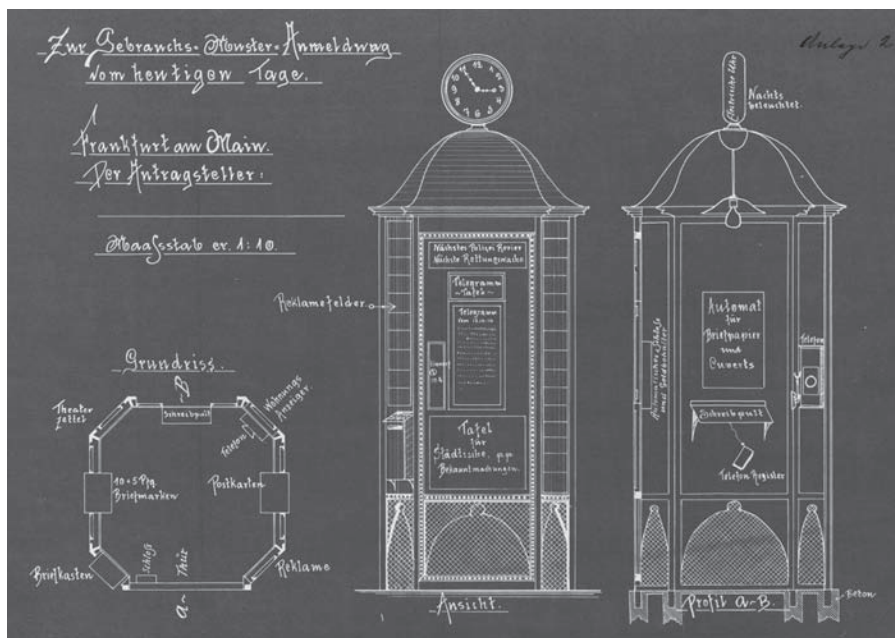 Zur Gebrauchs-Muster-Anmeldung
vom heutigen Tage.
Anlage 2
Frankfurt am Main.
Der Antragsteller:
Maaßstab cr. 1:10.
Grundriss.
B
Theater
zettel
Schreibpult
Wohnungs
Anzeiger.
Telefon
10+5 Pfg.
Briefmarken
Postkarten
Briefkasten
Schloß
Thür
Reklame
a
Reklamefelder
12
11
10
9
8
7
6
5
4
3
2
1
Nächstes Polizei Revier
Nächste Rettungswache
Telegramm
-Tafel-
Telegramm
Tafel
für
Städtische
Bekanntmachungen.
Ansicht.
Electrische Uhr
Nachts
beleuchtet.
Automatisches Schloß
und Geldbehälter
Automat
für
Briefpapier
und
Cuverts
Telefon
Schreibpult
Telefon Register
Profil a-B.
Beton